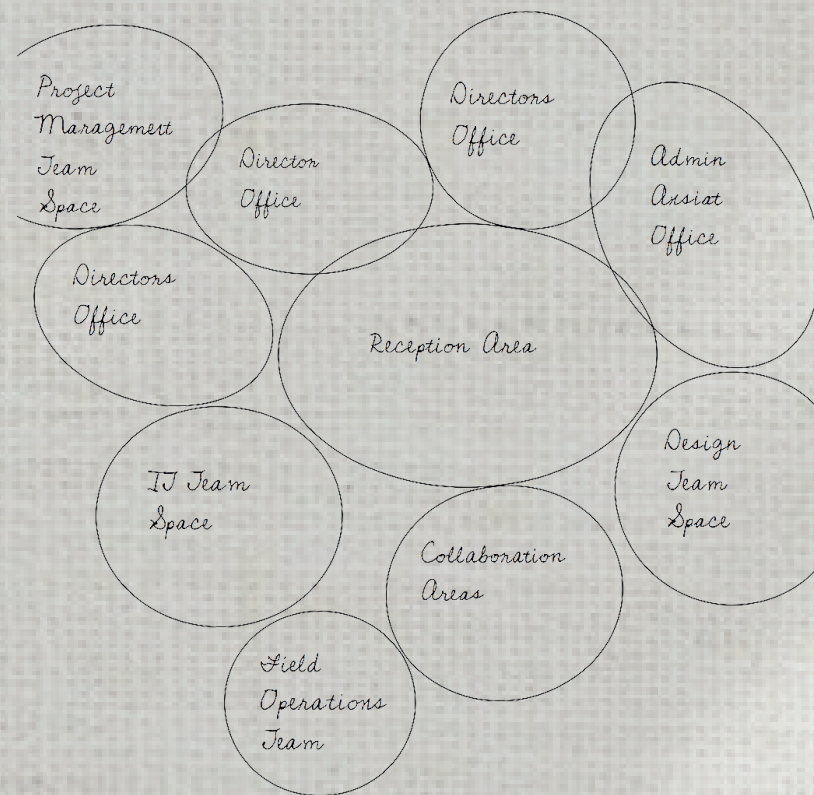 Project
Managemeit
Team
Space
Director
Office
Directors
Office
Admin
Arsiat
Office
Directors
Office
Reception Area
IT Team
Space
Design
Team
Space
Collaboration
Areas
Field
Operations
Team